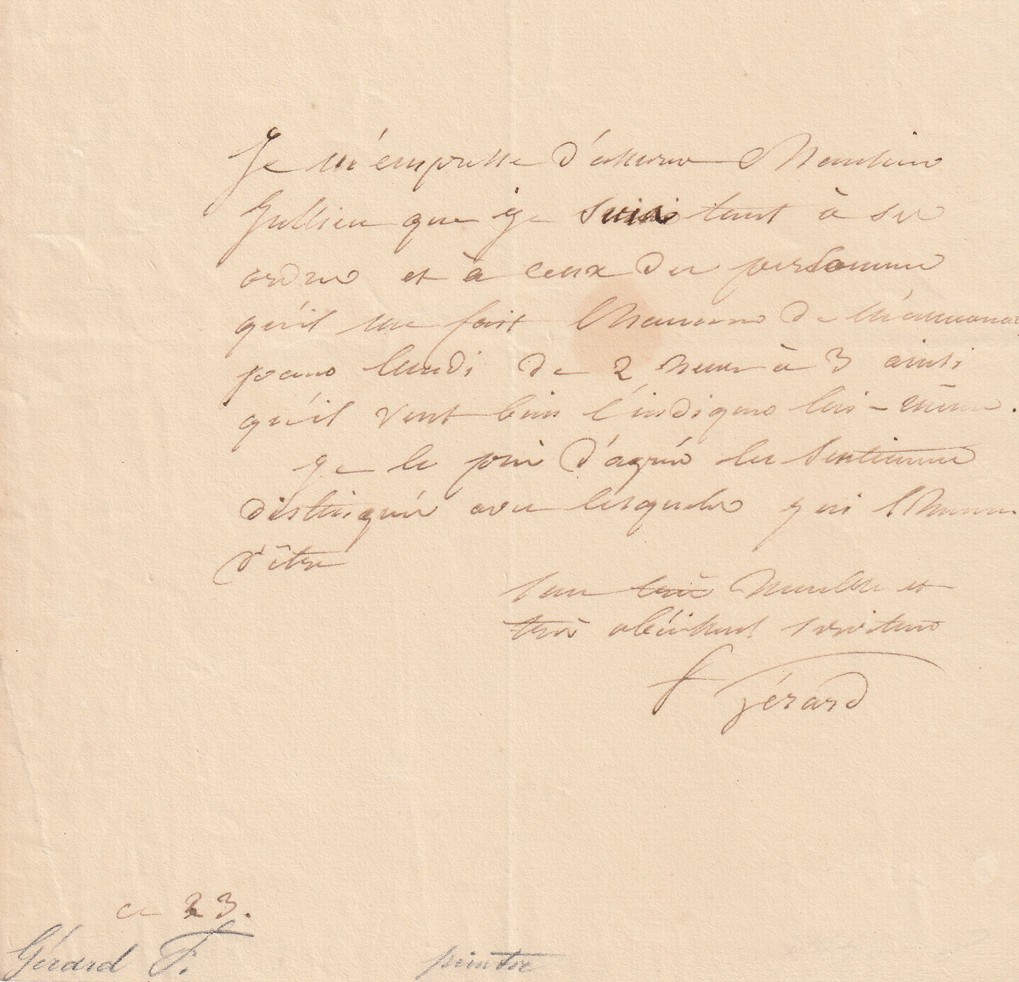 Je m'empresse d'assurer Monsieur
Jullien que je suis tout à ses
ordres et à ceux des personnes
qu'il me fait l'honneur de m'annoncer
pour lundi de 2 heures à 3 ainsi
qu'il veut bien l'indiquer lui-même.
Je le prie d'agréer les sentimens
distingués avec lesquels j'ai l'honneur
d'être
Son très humble et
très obéissant serviteur
f Gérard
ce 23.
Gérard F. peintre